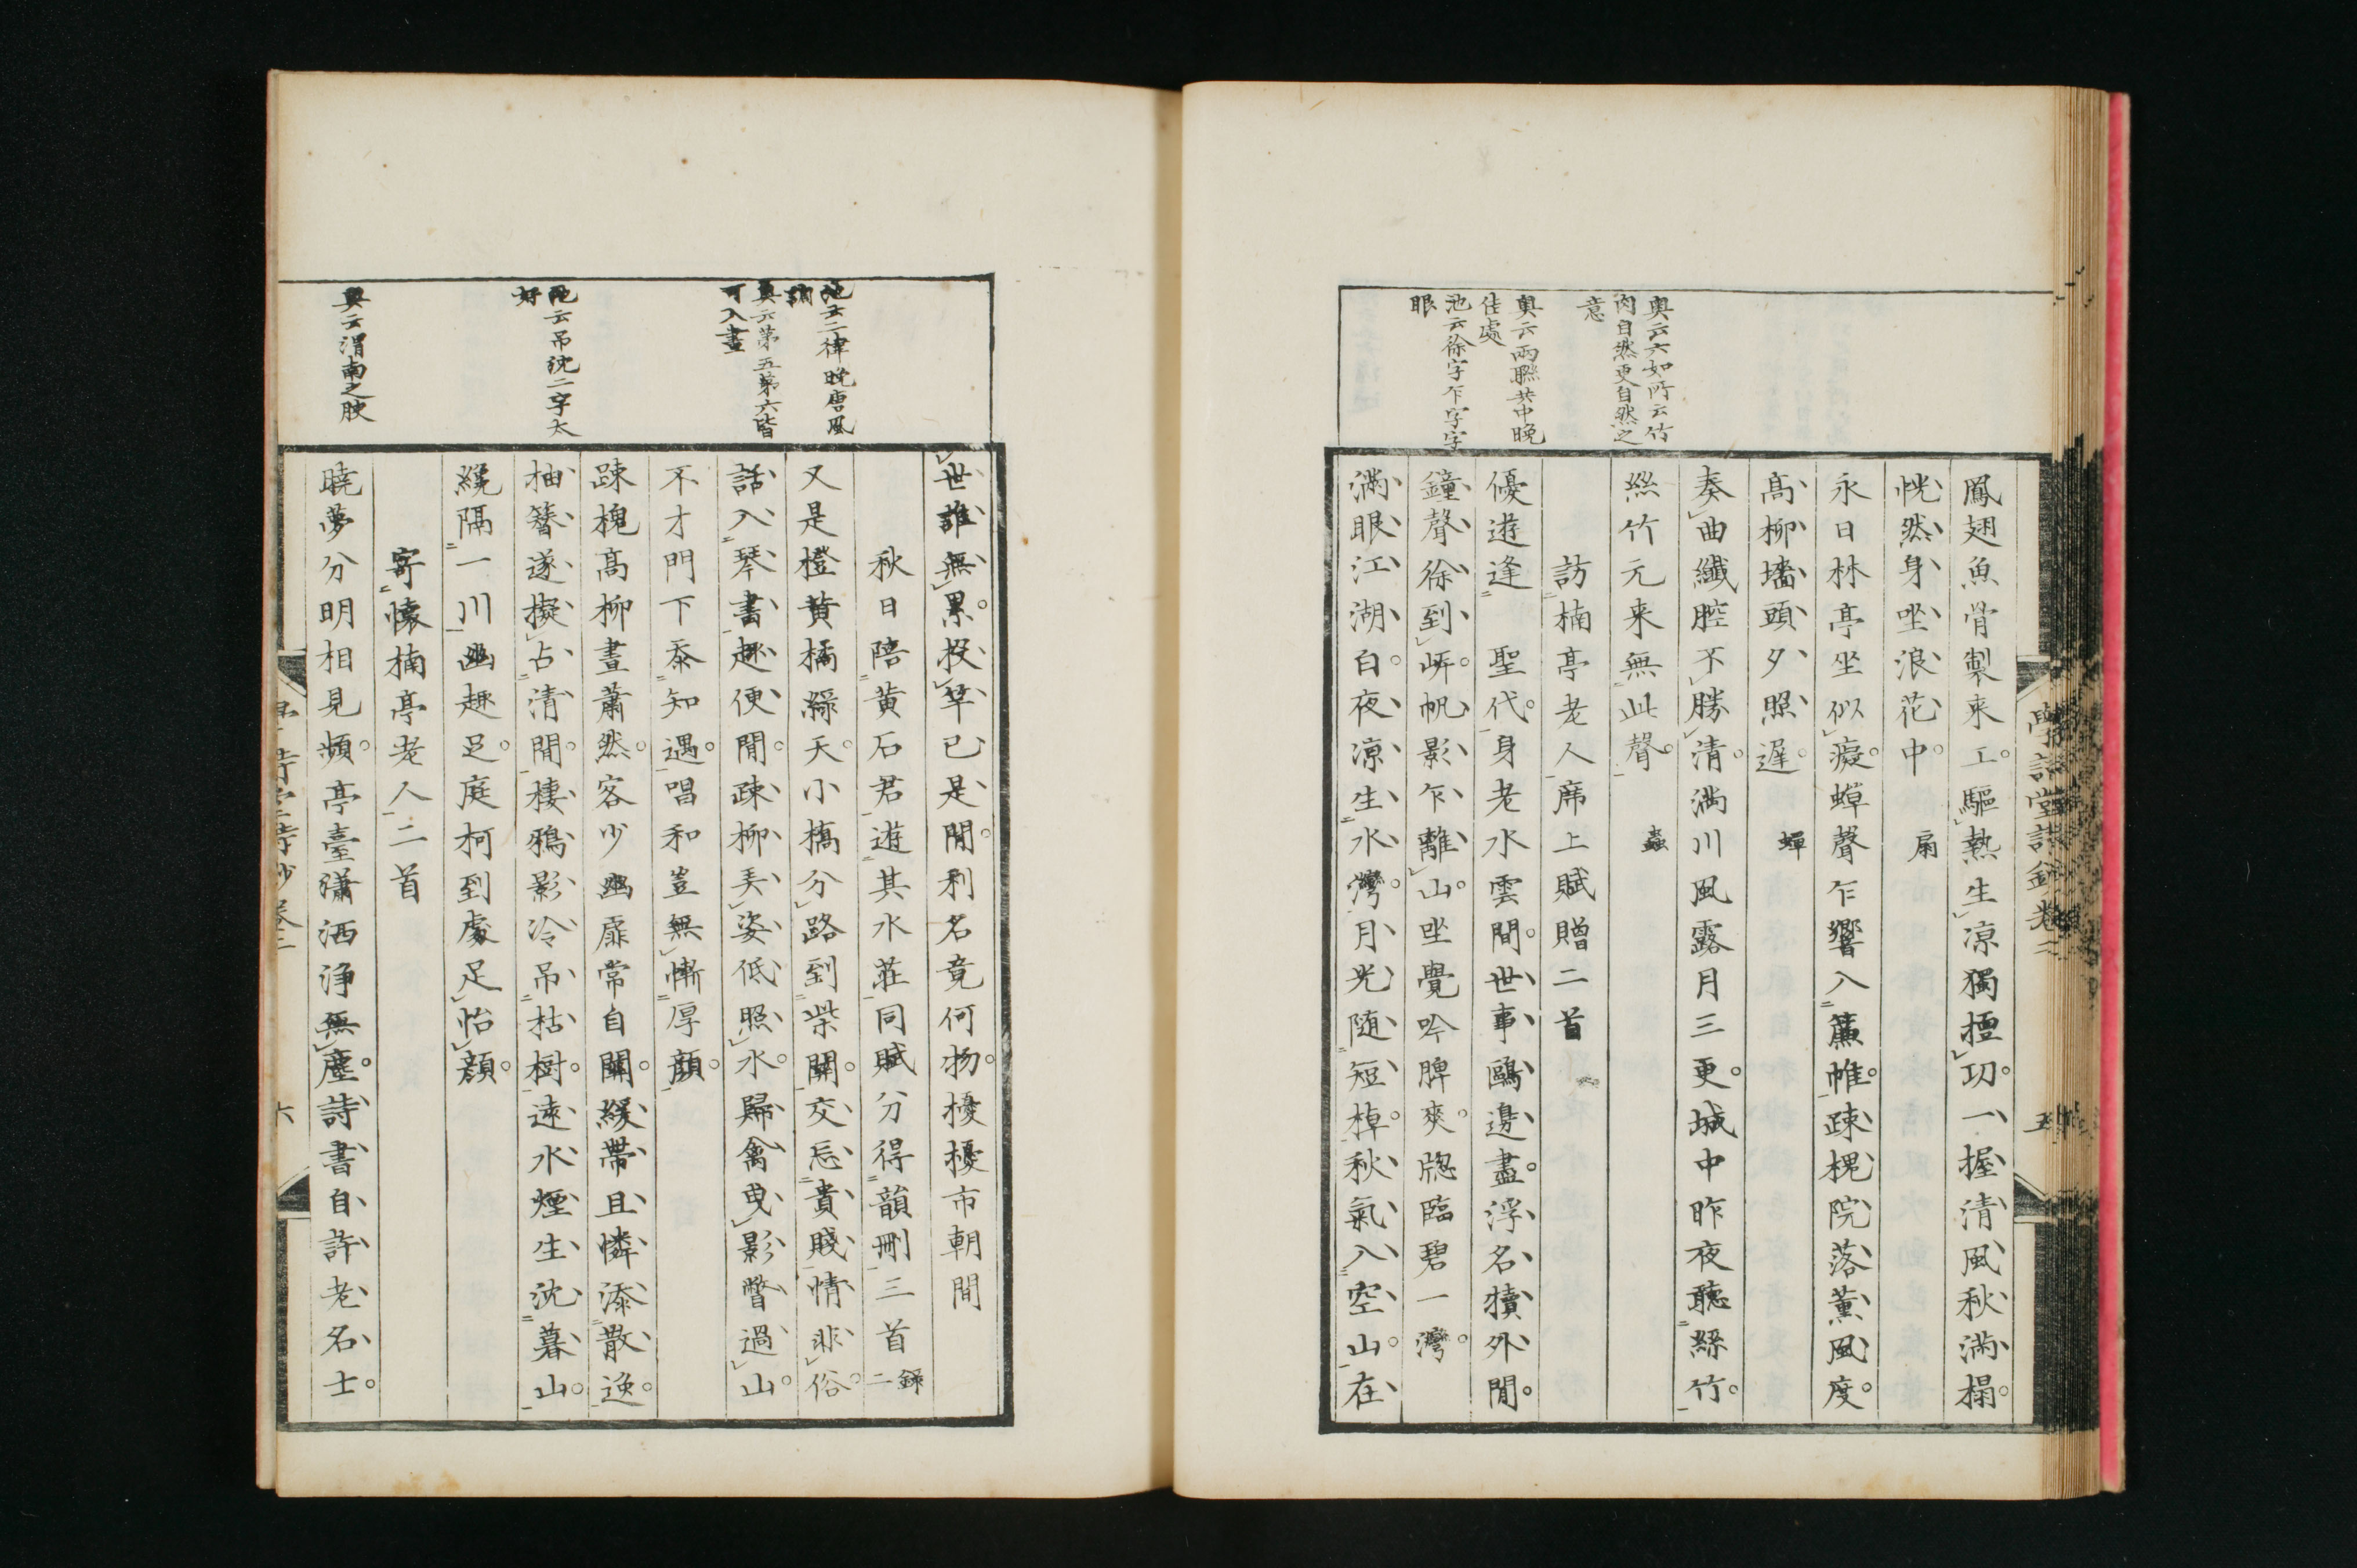 鳳翅魚骨製来工。驅熱生凉獨擅功。一握清風秋滿榻。
恍然身坐浪花中。　扇
永日林亭坐似癡。蟬聲乍響入簾帷。疎槐院落薰風度。
高柳墻頭夕照遲。　蟬
奏曲纖腔不勝清。満川風露月三更。城中昨夜聽絲竹。
絲竹元来無此聲。　蟲
訪楠亭老人席上賦贈二首
優遊逢　聖代。身老水雲間。世事鷗邊盡。浮名犢外閒。
鐘聲徐到岍。帆影乍離山。坐覺吟脾爽。牕臨碧一灣。
滿眼江湖白。夜凉生水灣。月光随短棹。秋氣入空山。在
奥云六如所云竹
肉自然更自然之
意
奥云兩聯共中晩
佳處
池云徐字乍字字
眼
世誰無累。投竿已是閒。利名竟何物。擾擾市朝間
秋日陪黄石君遊其水莊同賦分得韻刪三首録二
又是橙黄橘緑天。小橋分路到柴關。交忘貴賤情非俗。
話入琴書趣便閒。疎柳弄姿低照水。歸禽曳影瞥過山。
不才門下忝知遇。唱和豈無慚厚顔。
疎槐高柳晝蕭然。客少幽扉常自關。緩帶且憐添散逸。
抽簪遂擬占清閒。棲鴉影冷吊枯樹。遠水煙生沈暮山。
纔隔一川幽趣足。庭柯到處足怡顔。
寄懐楠亭老人二首
曉夢分明相見頻。亭臺瀟洒淨無塵。詩書自許老名士。
池云二律晩唐風
調
奥云第五第六皆
可入畫
池云吊沈二字太
好
奥云渭南之腴
六